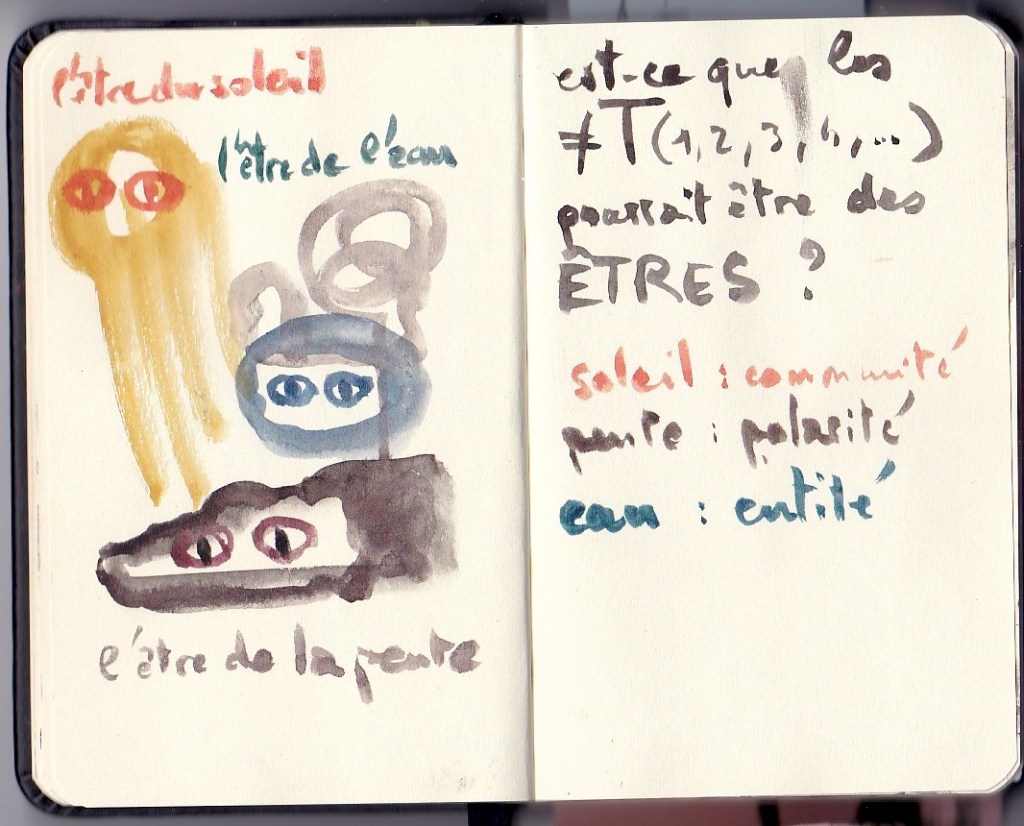 l'être du soleil
l'être de l'eau
l'être de la pente
est-ce que les
≠T(1,2,3,4,...)
pourrait être des
ÊTRES ?
soleil : communité
pente : polarité
eau : entité